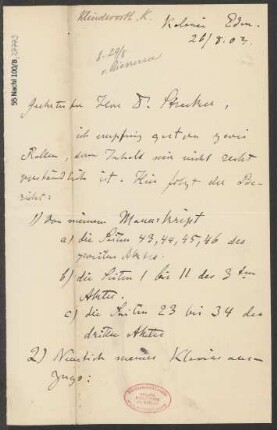 55 Nachl 100/B,
Klindworth K.
26/8.03.
Geehrter Herr Dr. Strecker,
ich empfing gestern zwei
Rollen, deren Inhalt mir nicht recht
verständlich ist. Hier folgt der Be-
richt:
1) Von meinem Manuskript
a) die Seiten 43, 44, 45, 46 des
zweiten Aktes.
b) die Seiten 1 bis 11 des 3ten
Aktes.
c) die Seiten 23 bis 34 des
dritten Aktes
2) meines Klavieraus-
zugs: